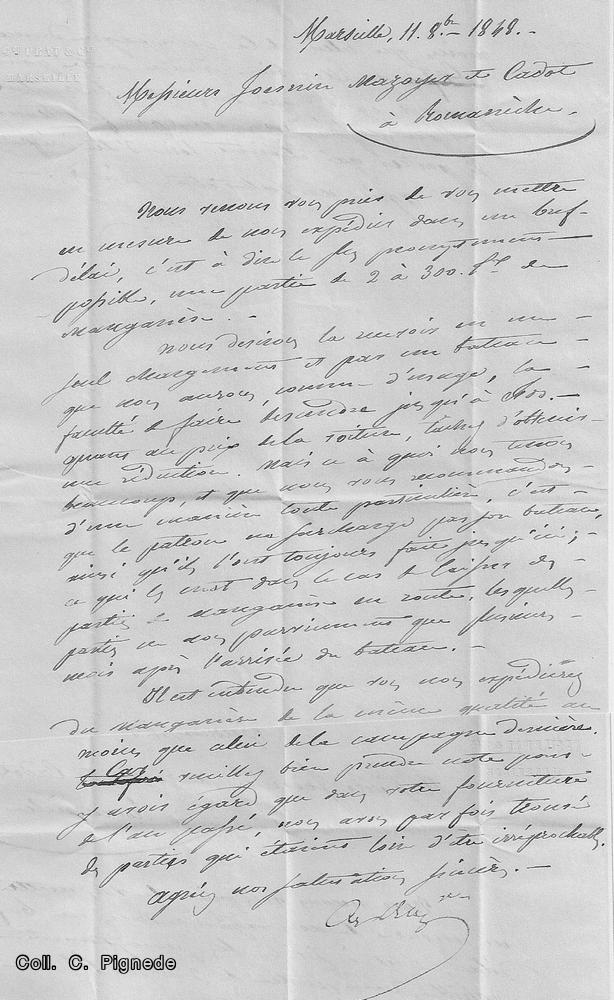 MARSEILLE
Marseille, 11. 8.bre 1848.
Messieurs Mazoyer & Cadot
à Romanèche.
Nous venons vous prier de vous mettre
en mesure de nous expédier dans un bref
délai, c'est à dire le plus promptement
possible, une partie de 2 à 300 de
Manganèse.
Nous désirons la recevoir en un
seul chargement et par un bateau
que nous aurons, comme d'usage, la
faculté de faire descendre jusqu'à
quant au prix de la voiture, tâchez d'obtenir
une réduction. Mais ce à quoi nous tenons
beaucoup, et que nous vous recommandons
d'une manière toute particulière, c'est
que le patron ne surcharge pas son bateau,
ainsi qu'ils l'ont toujours fait jusqu'ici;
ce qui les met dans le cas de laisser des
parties de manganèse en route, lesquelles
parties ne nous parviennent que plusieurs
mois après l'arrivée du bateau.
Il est entendu que vous nous expédierez
du manganèse de la même qualité au
moins que celui de la campagne dernière.
Car veuillez bien prendre note pour
y avoir égard que dans votre fourniture
de l'an passé, nous avons par fois trouvé
des parties qui étaient loin d'être irréprochables.
agréez nos salutations sincères.
Coll. C. Pignede